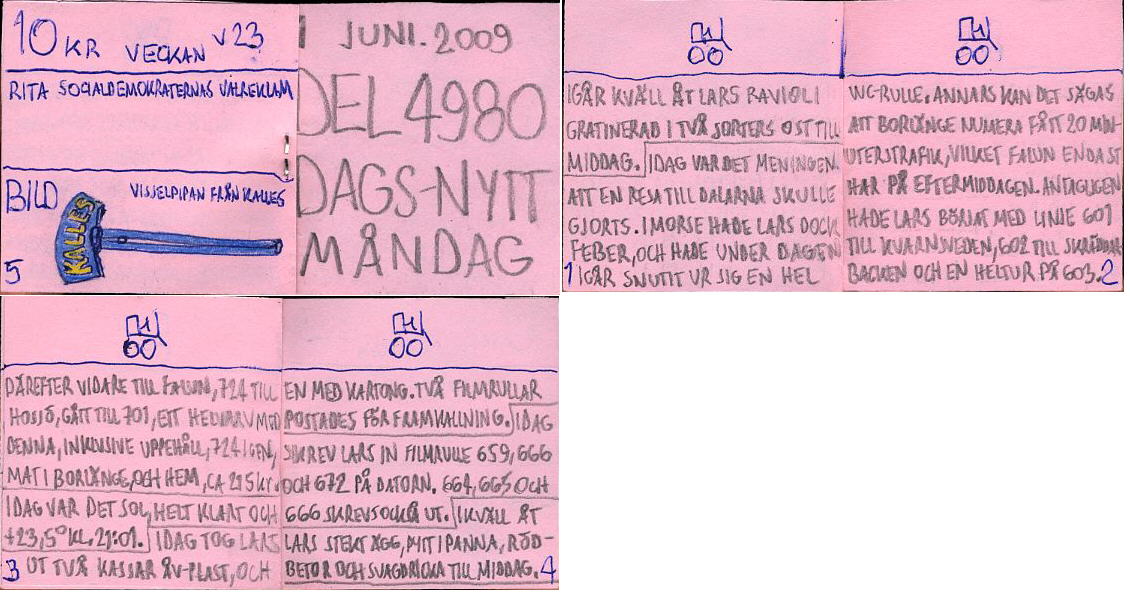 10 KR VECKAN V23
RITA SOCIALDEMOKRATERNAS VALREKLAM
BILD
VISSELPIPAN FRÅN KALLES
KALLES
5
1 JUNI. 2009
DEL 4980
DAGS-NYTT
MÅNDAG
IGÅR KVÄLL ÅT LARS RAVIOLI
GRATINERAD I TVÅ SORTERS OST TILL
MIDDAG. IDAG VAR DET MENINGEN
ATT EN RESA TILL DALARNA SKULLE
GJORTS. I MORSE HADE LARS DOCK
FEBER, OCH HADE UNDER DAGEN
IGÅR SNUTIT UR SIG EN HEL
1
WC-RULLE. ANNARS KAN DET SÄGAS
ATT BORLÄNGE NUMERA FÅTT 20 MIN-
UTERSTRAFIK, VILKET FALUN ENDAST
HAR PÅ EFTERMIDDAGEN. ANTAGLIGEN
HADE LARS BÖRJAT MED LINJE 601
TILL KVARNSVEDEN, 602 TILL SKRÄDDAR-
BACKEN OCH EN HELTUR PÅ 603.
2
DÄREFTER VIDARE TILL FALUN, 724 TILL
HOSJÖ, GÅTT TILL 701, ETT HELVARV MED
DENNA, INKLUSIVE UPPEHÅLL, 724 IGEN,
MAT I BORLÄNGE, OCH HEM, CA 215 KR.
IDAG VAR DET SOL, HELT KLART OCH
+23,5° KL. 21:01. IDAG TOG LARS
UT TVÅ KASSAR AV PLAST, OCH
3
EN MED KARTONG. TVÅ FILMRULLAR
POSTADES FÖR FRAMKALLNING. IDAG
SKREV LARS IN FILMRULLE 659, 666
OCH 672 PÅ DATORN. 664, 665 OCH
666 SKREVS OCKSÅ UT. IKVÄLL ÅT
LARS STEKT ÄGG, PYTTIPANNA, RÖD-
BETOR OCH SVAGDRICKA TILL MIDDAG.
4